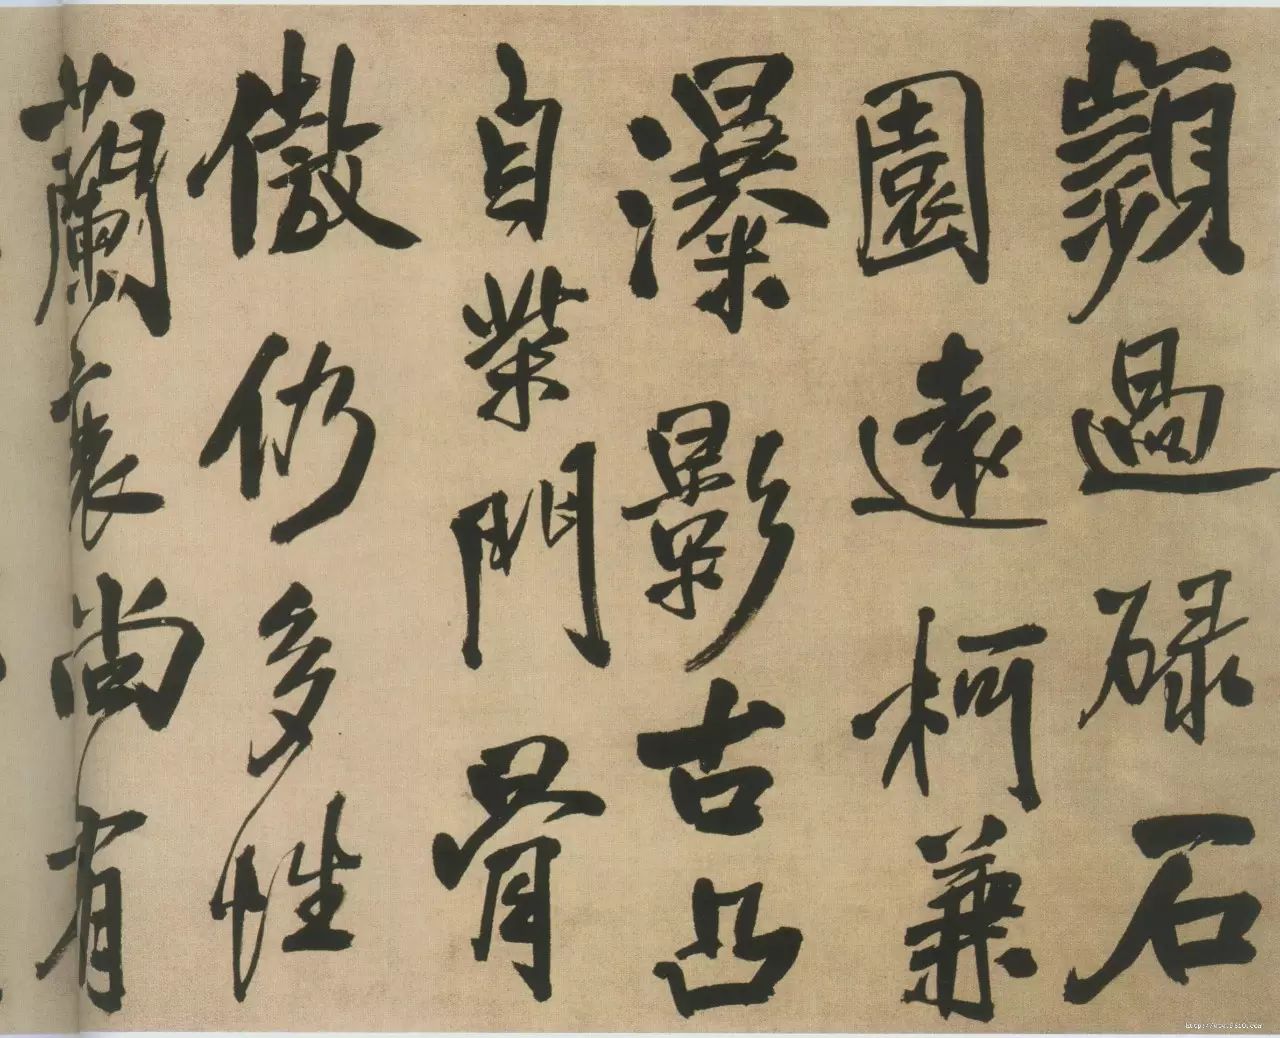 頻過碌石
園遠柯兼
瀑影古凸
自柴門骨
傲仍多性
蘭衰尚有
http://www.9610.com